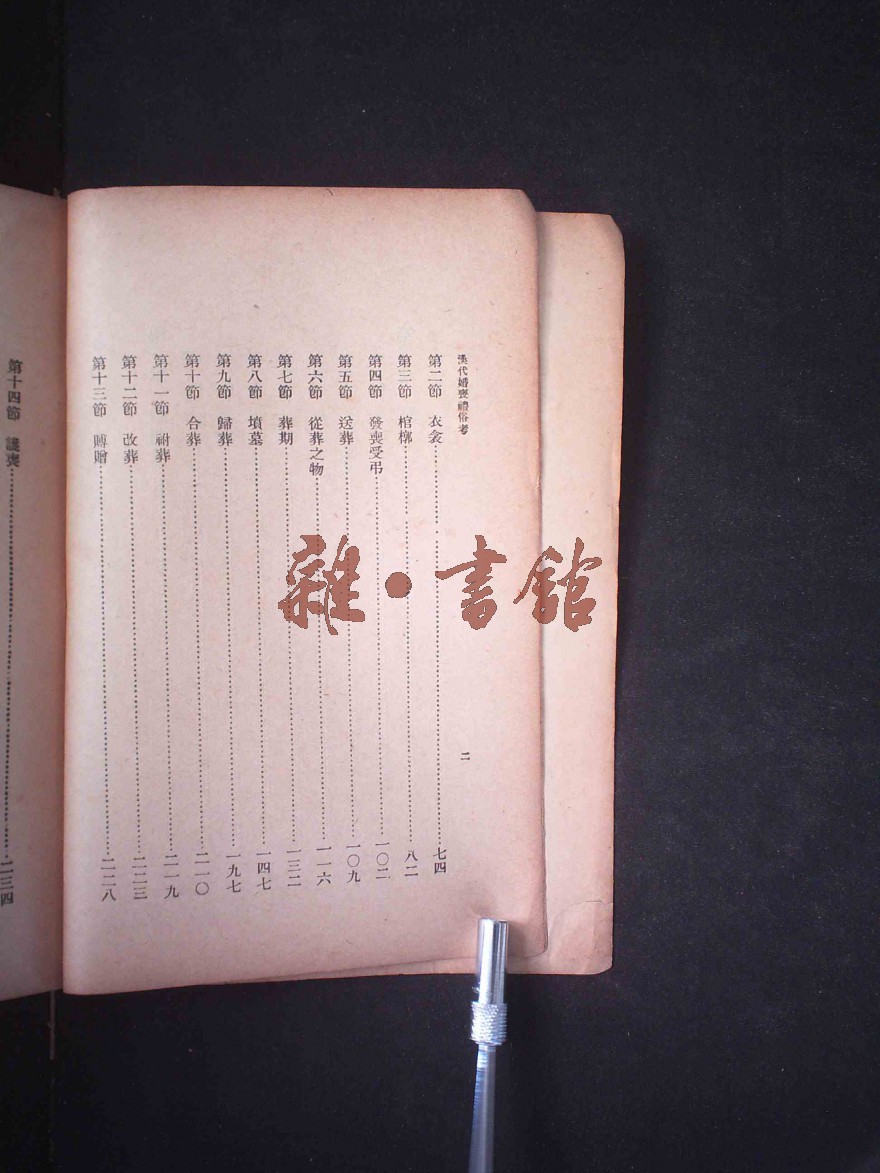 漢代婚喪禮俗考
二
第二節 衣衾……七四
第三節 棺槨……八二
第四節 發喪受弔……一〇二
第五節 送葬……一〇九
第六節 從葬之物……一一六
第七節 葬期……一三二
第八節 墳墓……一四七
第九節 歸葬……一九七
第十節 合葬……二一〇
第十一節 祔葬……二一九
第十二節 改葬……二二三
第十三節 賻贈……二二八
第十四節 護喪……二三四
雜·書館